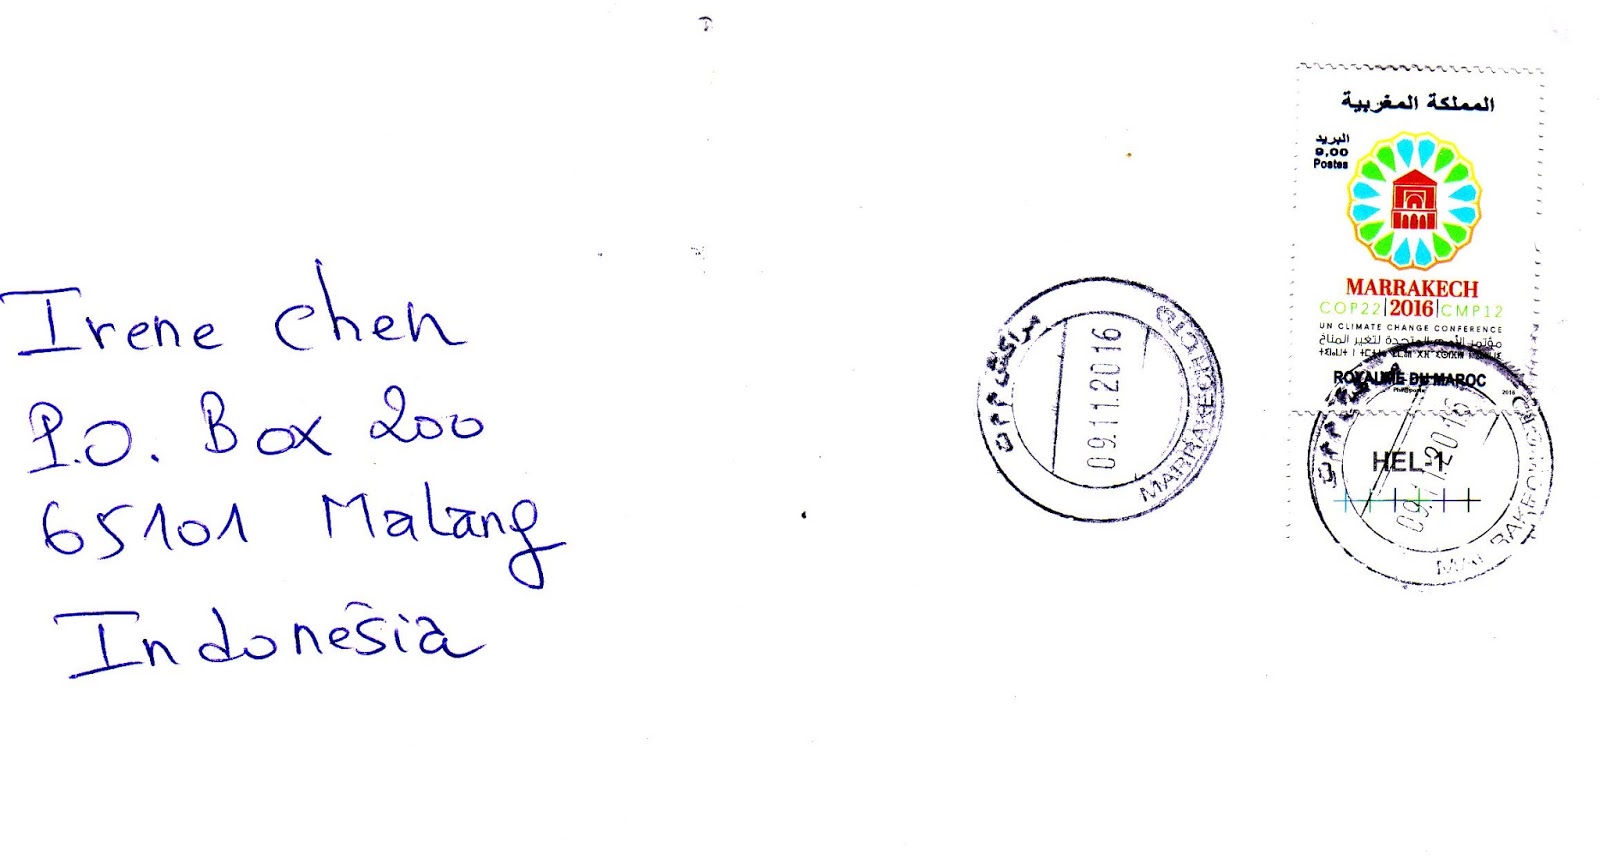 Irene Chen
P.O. Box 200
65101 Malang
Indonesia
المملكة المغربية
البريد
9,00
Postes
MARRAKECH
COP22|2016|CMP12
UN CLIMATE CHANGE CONFERENCE
مؤتمر الأمم المتحدة لتغير المناخ
ROYAUME DU MAROC
2016
HEL-1
مراكش م م ت
09.11.2016
MARRAKECH
مراكش م م ت
09.11.2016
MARRAKECH